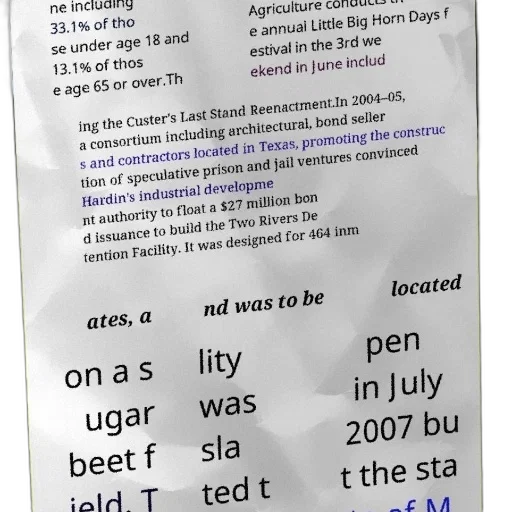 ne including
33.1% of tho
se under age 18 and
13.1% of thos
e age 65 or over.Th
Agriculture conducts
e annual Little Big Horn Days f
estival in the 3rd we
ekend in June includ
ing the Custer's Last Stand Reenactment.In 2004–05,
a consortium including architectural, bond seller
s and contractors located in Texas, promoting the construc
tion of speculative prison and jail ventures convinced
Hardin's industrial developme
nt authority to float a $27 million bon
d issuance to build the Two Rivers De
tention Facility. It was designed for 464 inm
ates, a
nd was to be
located
on a s
ugar
beet f
ield. T
lity
was
sla
ted t
pen
in July
2007 bu
t the sta
of M